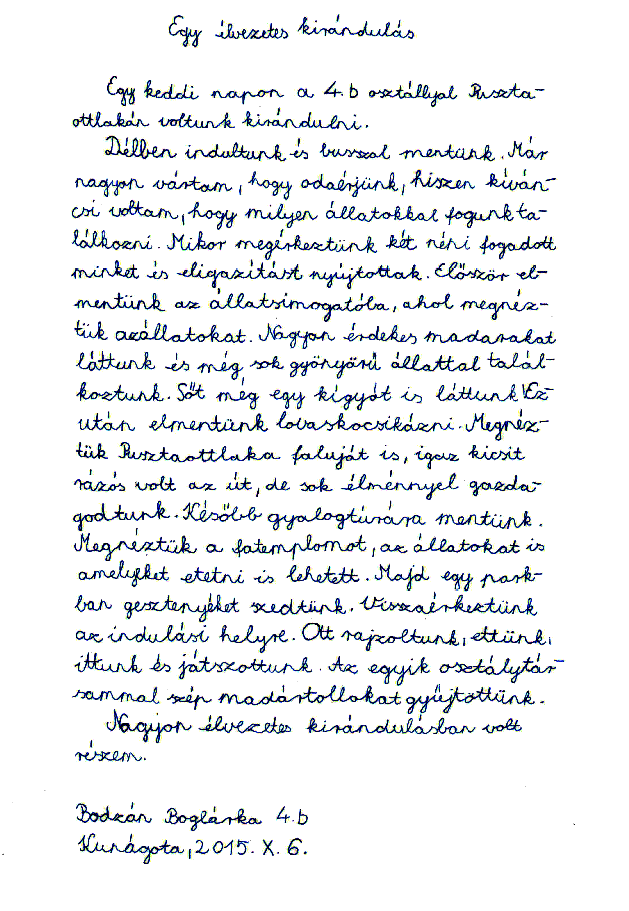 Egy élvezetes kirándulás
Egy keddi napon a 4.b osztállyal Puszta-
ottlakán voltunk kirándulni.
Délben indultunk és busszal mentünk. Már
nagyon vártam, hogy odaérjünk, hiszen kíván-
csi voltam, hogy milyen állatokkal fogunk ta-
lálkozni. Mikor megérkeztünk két néni fogadott
minket és eligazítást nyújtottak. Először el-
mentünk az állatsimogatóba, ahol megnéz-
tük az állatokat. Nagyon érdekes madarakat
láttunk és még sok gyönyörű állattal talál-
koztunk. Sőt még egy kígyót is láttunk! Ez-
után elmentünk lovaskocsikázni. Megnéz-
tük Pusztaottlaka faluját is, igaz kicsit
rázós volt az út, de sok élménnyel gazda-
godtunk. Később gyalogtúrára mentünk.
Megnéztük a fatemplomot, az állatokat is
amelyiket etetni is lehetett. Majd egy park-
ban gesztenyéket szedtünk. Visszaérkeztünk
az indulási helyre. Ott rajzoltunk, ettünk,
ittunk és játszottunk. Az egyik osztálytár-
sammal szép madártollokat gyűjtöttünk.
Nagyon élvezetes kirándulásban volt
részem.
Bodzán Boglárka 4.b
Kunágota, 2015. X. 6.